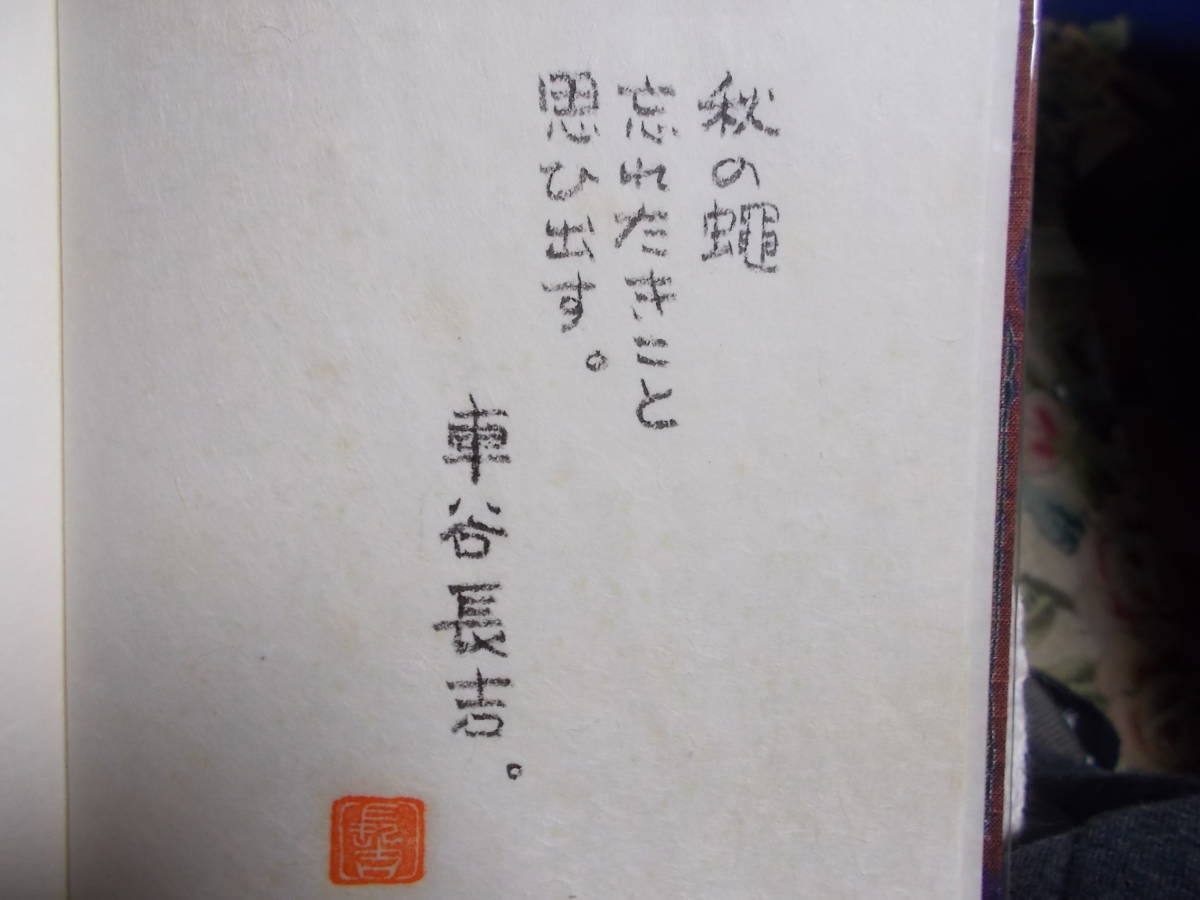 秋の蠅
忘れたきこと
思ひ出す。
車谷長吉。
長吉